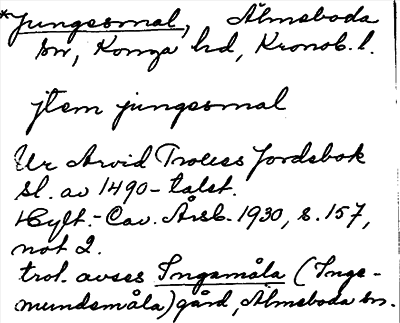 *Jungesmal, Älmeboda
sn, Konga hd, Kronob. l.
jtem jungesmal
Ur Arvid Trolles Jordebok
sl. av 1490-talet.
Hylt.-Cav. Årsb. 1930, s. 157,
not 2.
trol. avses Ingamåla (Inge-
mundsmåla) gård, Älmeboda sn.